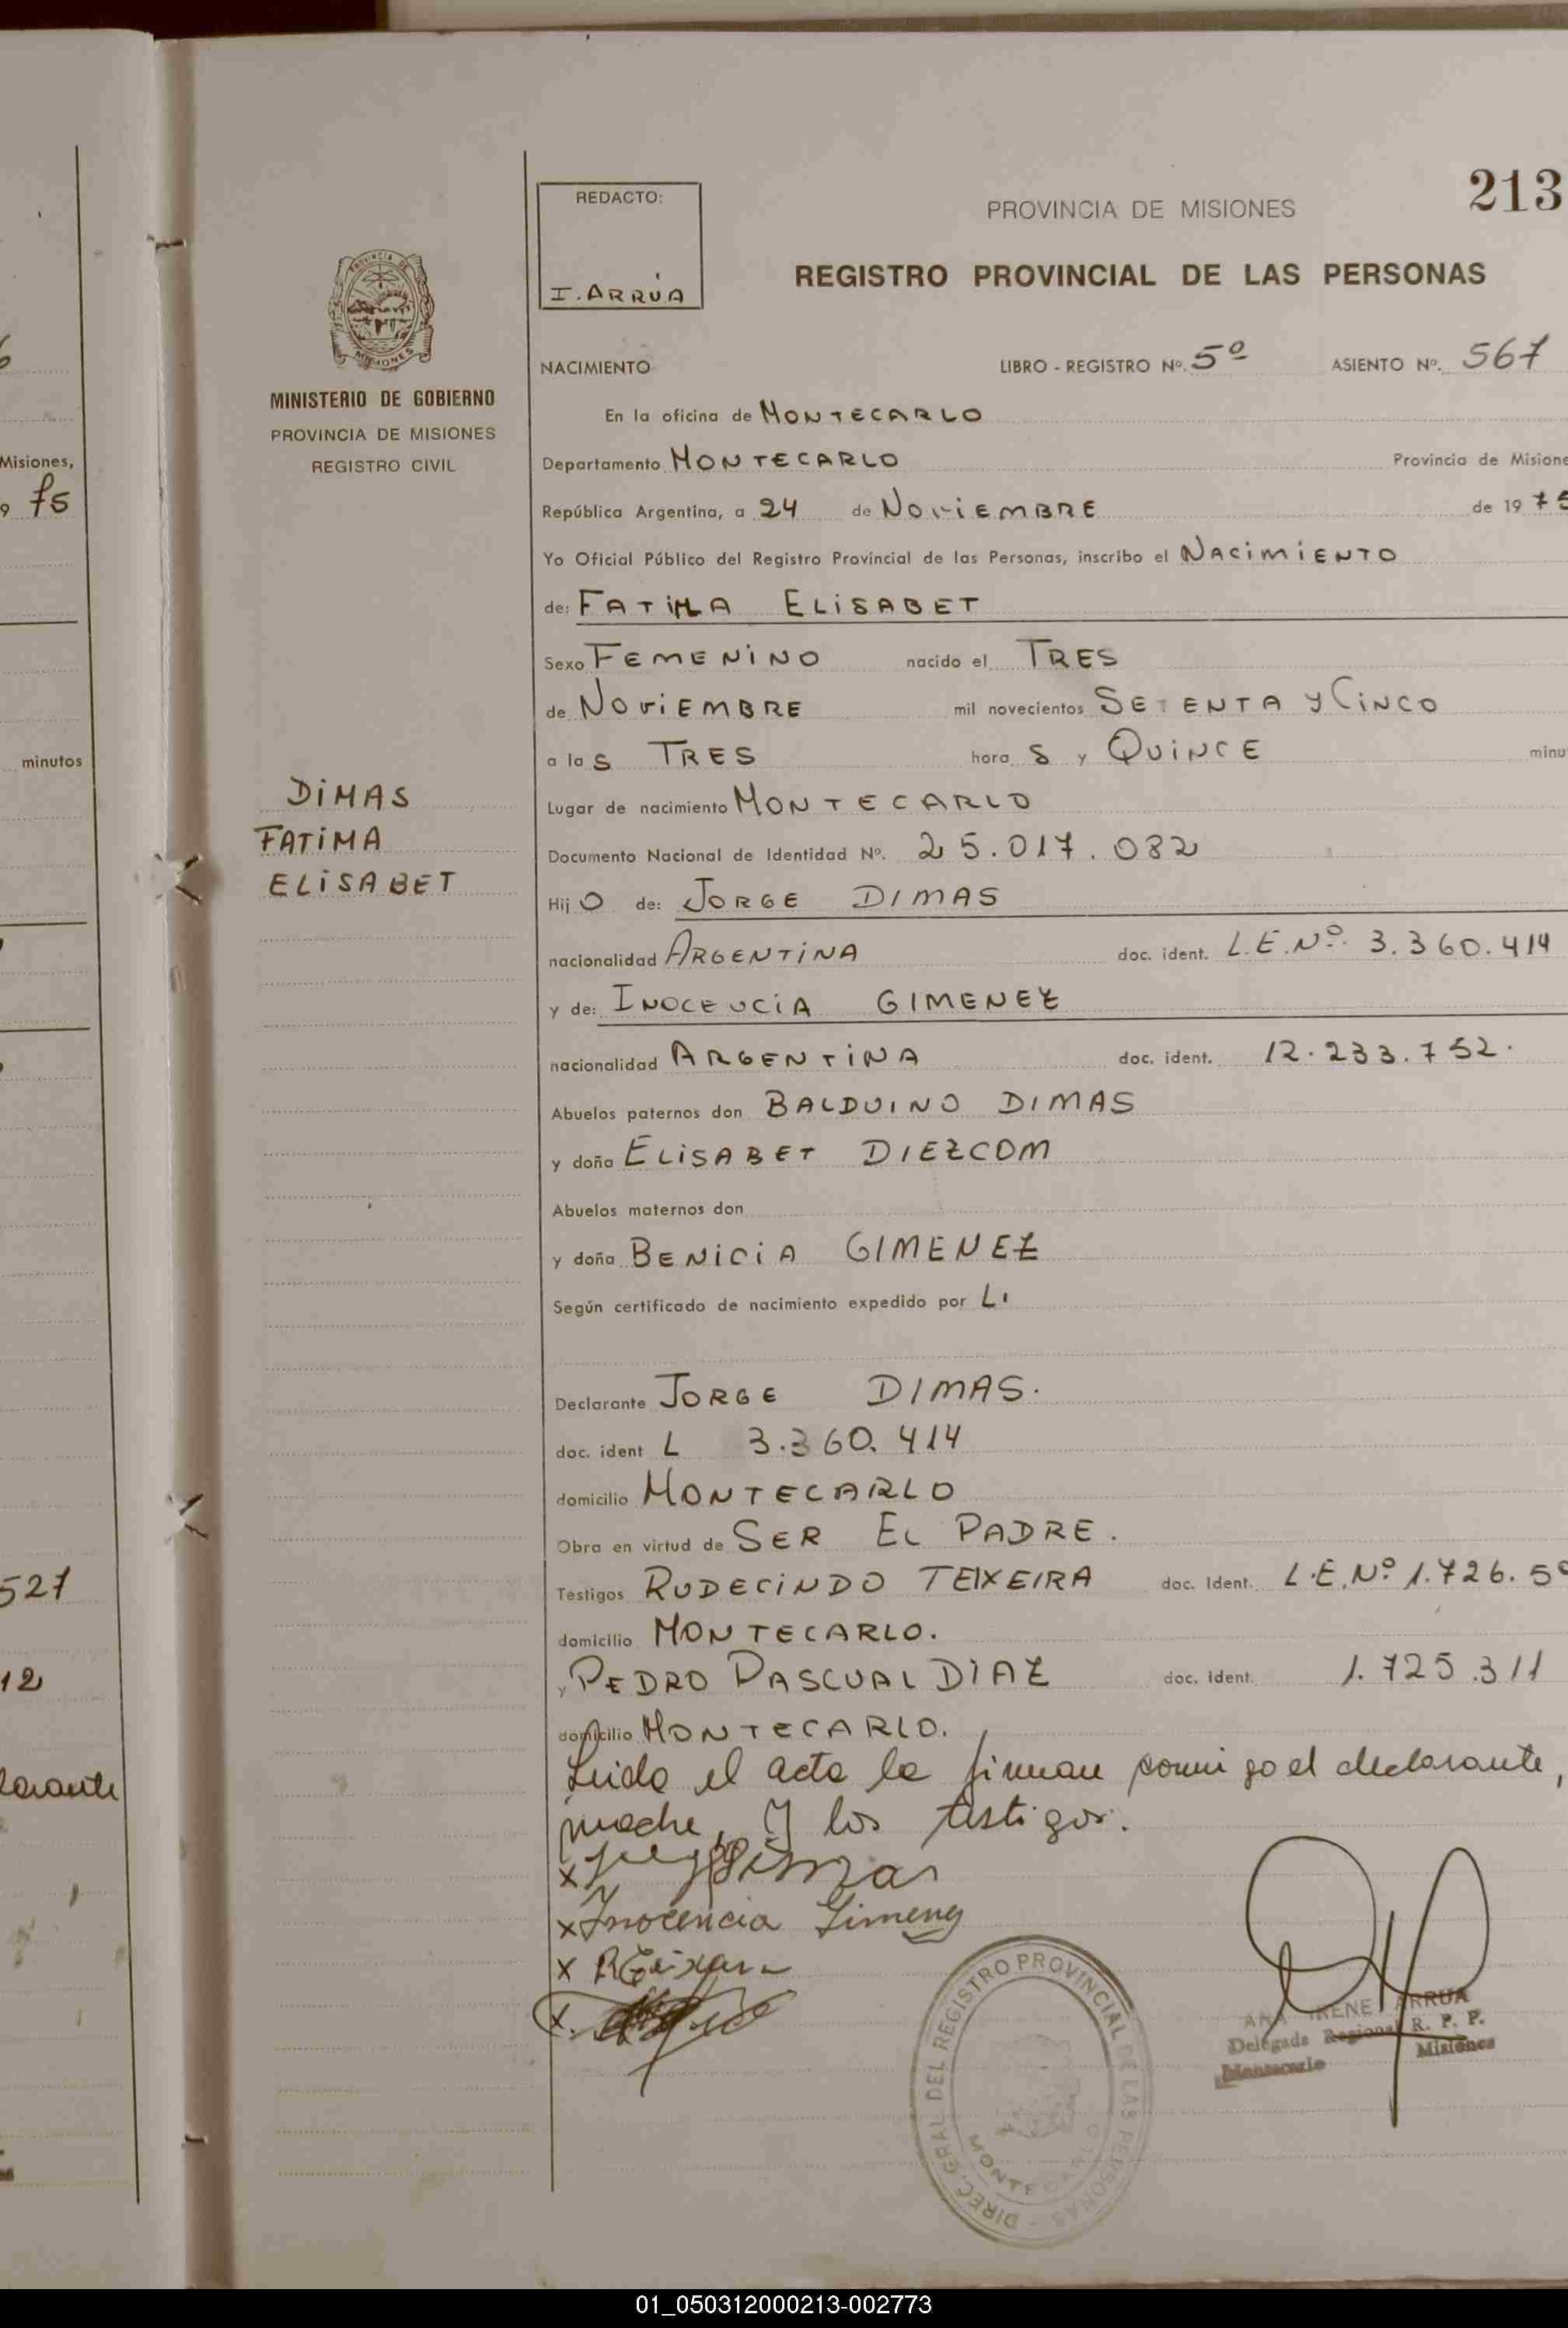 213
REDACTO:
I. ARRÚA
PROVINCIA DE MISIONES
REGISTRO PROVINCIAL DE LAS PERSONAS
PROVINCIA DE
MISIONES
MINISTERIO DE GOBIERNO
PROVINCIA DE MISIONES
REGISTRO CIVIL
NACIMIENTO LIBRO - REGISTRO Nº. 5º ASIENTO Nº. 567
En la oficina de MONTECARLO
Departamento MONTECARLO Provincia de Misione
República Argentina, a 24 de NOVIEMBRE de 19 75
Yo Oficial Público del Registro Provincial de las Personas, inscribo el NACIMIENTO
de: FATIMA ELISABET
Sexo FEMENINO nacido el TRES
de NOVIEMBRE mil novecientos SETENTA y CINCO
a las TRES hora s y QUINCE minu
Lugar de nacimiento MONTECARLO
Documento Nacional de Identidad Nº. 25.017.082
Hijo de: JORGE DIMAS
nacionalidad ARGENTINA doc. ident. L.E.Nº. 3.360.414
y de: INOCENCIA GIMENEZ
nacionalidad ARGENTINA doc. ident. 12.233.752.
Abuelos paternos don BALDUINO DIMAS
y doña ELISABET DIEZCOM
Abuelos maternos don
y doña BENICIA GIMENEZ
Según certificado de nacimiento expedido por L.
Declarante JORGE DIMAS.
doc. ident L 3.360.414
domicilio MONTECARLO
Obra en virtud de SER EL PADRE.
Testigos RUDECINDO TEIXEIRA doc. Ident. L.E.Nº 1.726.5
domicilio MONTECARLO.
y PEDRO PASCUAL DIAZ doc. ident. 1.725.311
domicilio MONTECARLO.
Leida el acta la firman conmigo el declarante,
madre, y los testigos.
x Dimas
x Inocencia Gimenez
x R Teixeira
x
ANA IRENE ARRUA
Delegada Regional R. P. P.
Montecarlo Misiones
DIREC. GRAL DEL REGISTRO PROVINCIAL DE LAS PERSONAS
MONTECARLO
DIMAS
FATIMA
ELISABET
Misiones,
9 75
minutos
527
12
larante
01_050312000213-002773